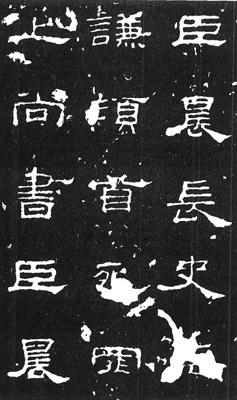 臣晨長史
謙頓首死罪
上尚書臣晨